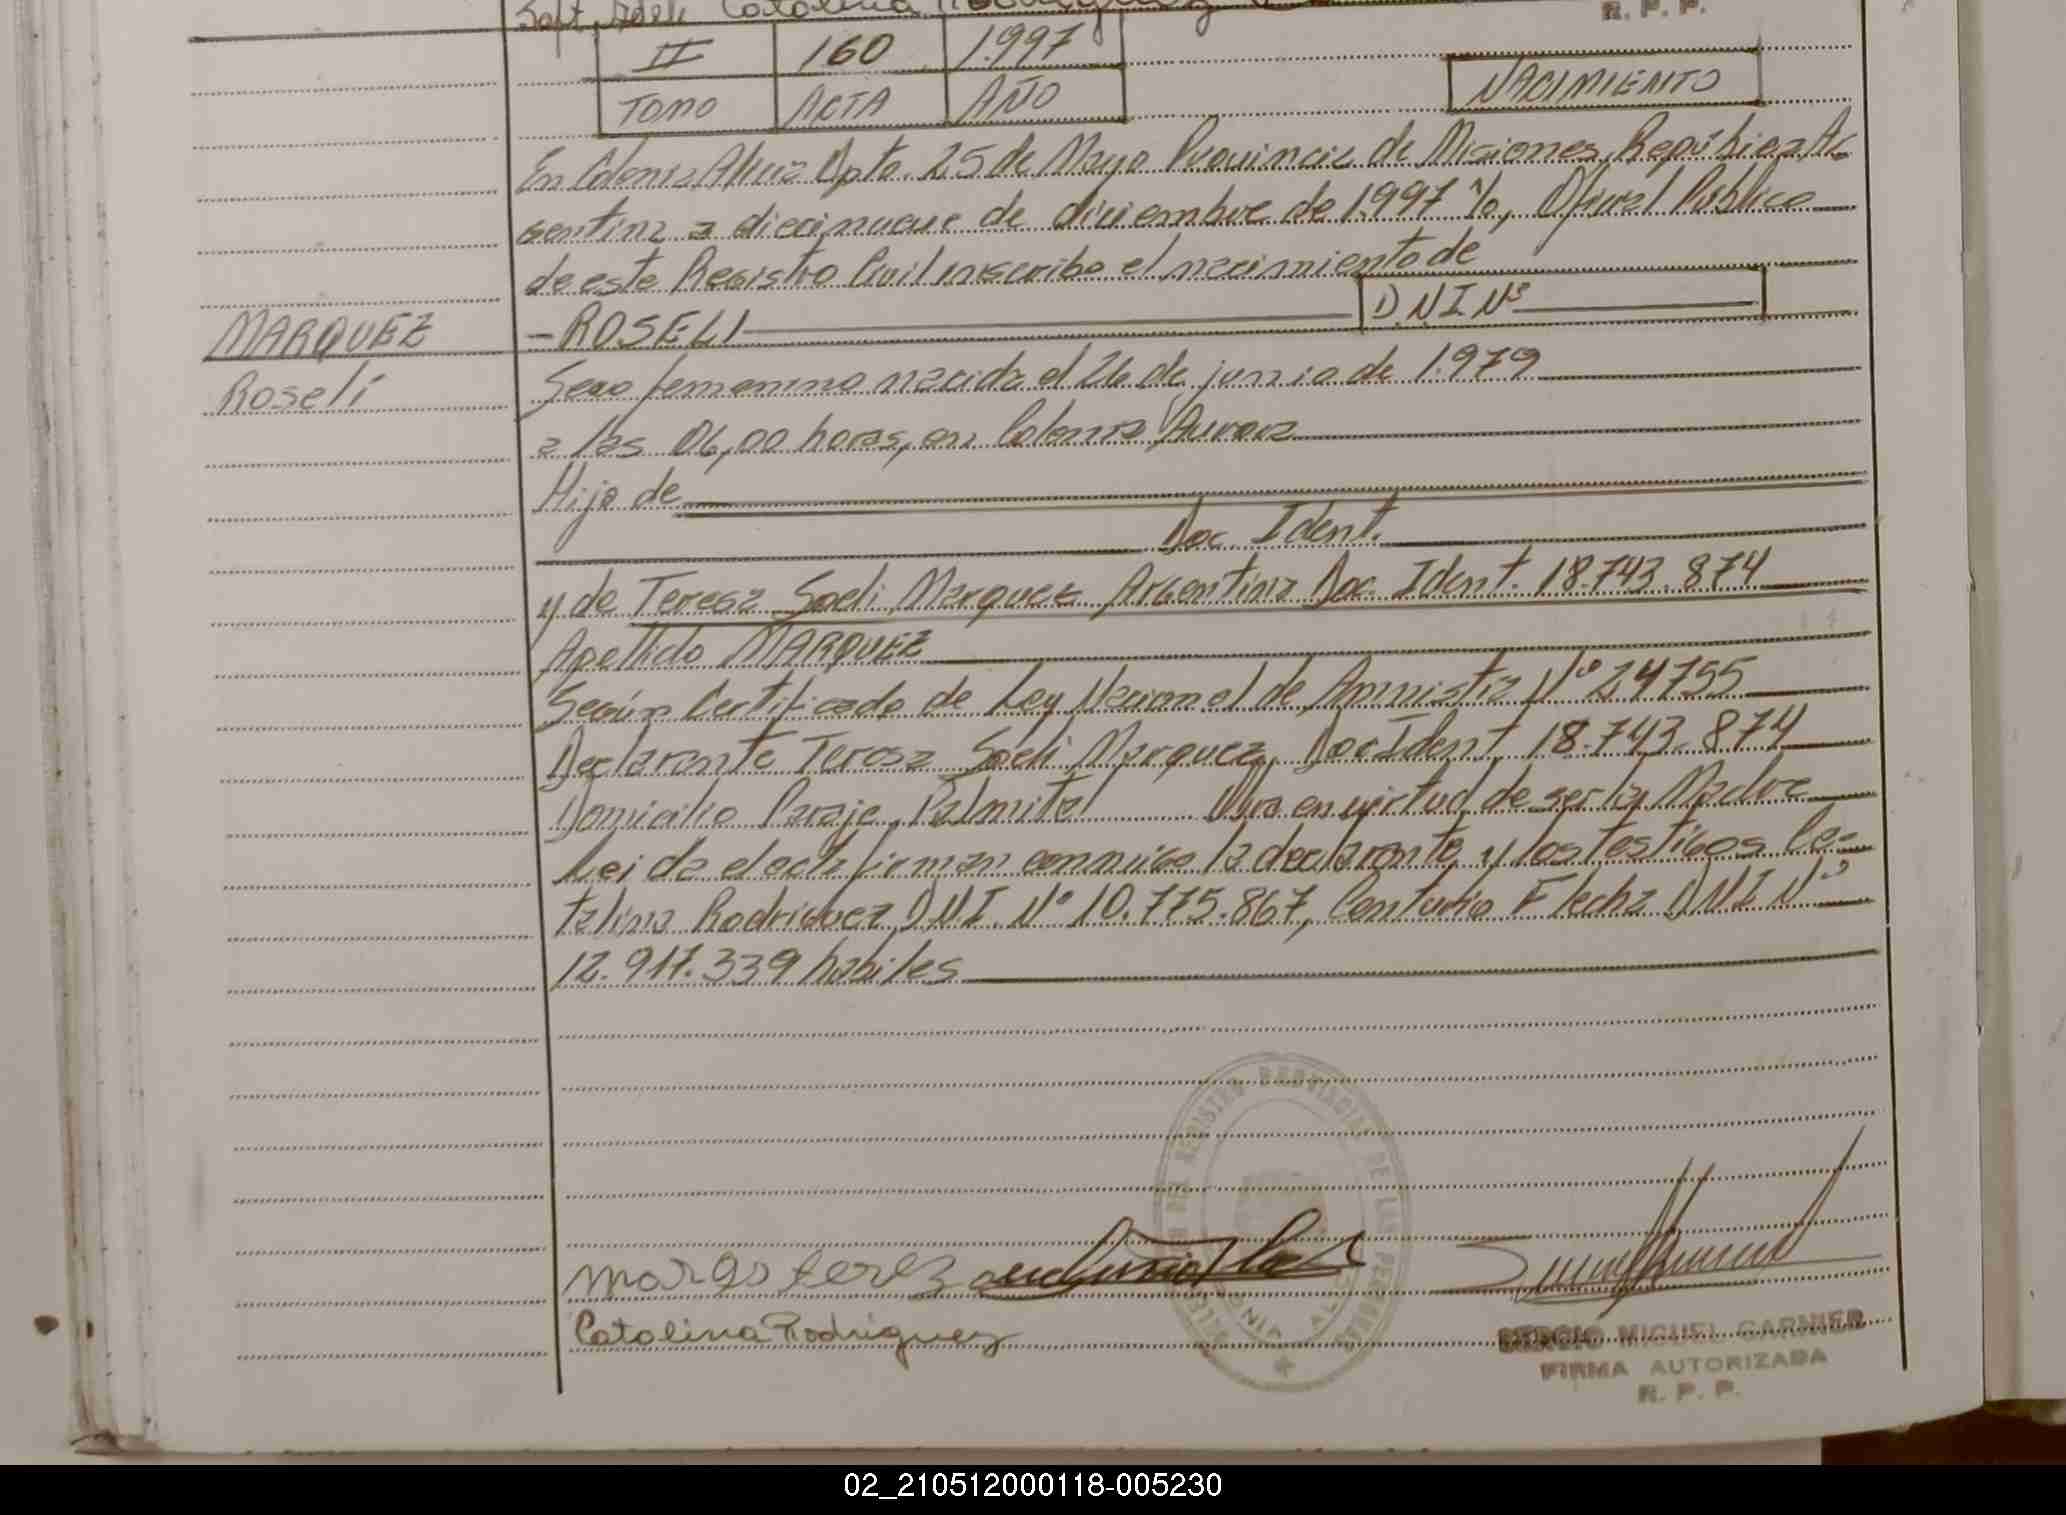 Catalina Rodriguez
R. P. P.
II 160 1.997
TOMO ACTA AÑO
NACIMIENTO
En Colonia Alicia Dpto. 25 de Mayo Provincia de Misiones, República Ar-
gentina a diecinueve de diciembre de 1.997 %, Oficial Público
de este Registro Civil inscribo el nacimiento de
MARQUEZ
- ROSELI D.N.I. Nº
Roseli
Sexo femenino nacida el 26 de junio de 1.979
a las 06,00 horas, en Colonia Aurora
Hijo de
Doc. Ident.
y de Teresa Soeli Marquez Argentina Doc. Ident. 18.743.874
Apellido MARQUEZ
Según Certificado de Ley Nacional de Amnistia Nº 24755
Declarante Teresa Soeli Marquez, Doc Ident. 18.743.874
Domicilio Paraje Palmital Obra en virtud de ser la Madre
Leida el acta firman conmigo la declarante y los testigos Ca-
talina Rodriguez D.N.I. Nº 10.775.867, Conturio Flecha D.N.I Nº
12.917.339 habiles
Catalina Rodriguez
SERGIO MIGUEL GARNIER
FIRMA AUTORIZADA
R. P. P.
02_210512000118-005230